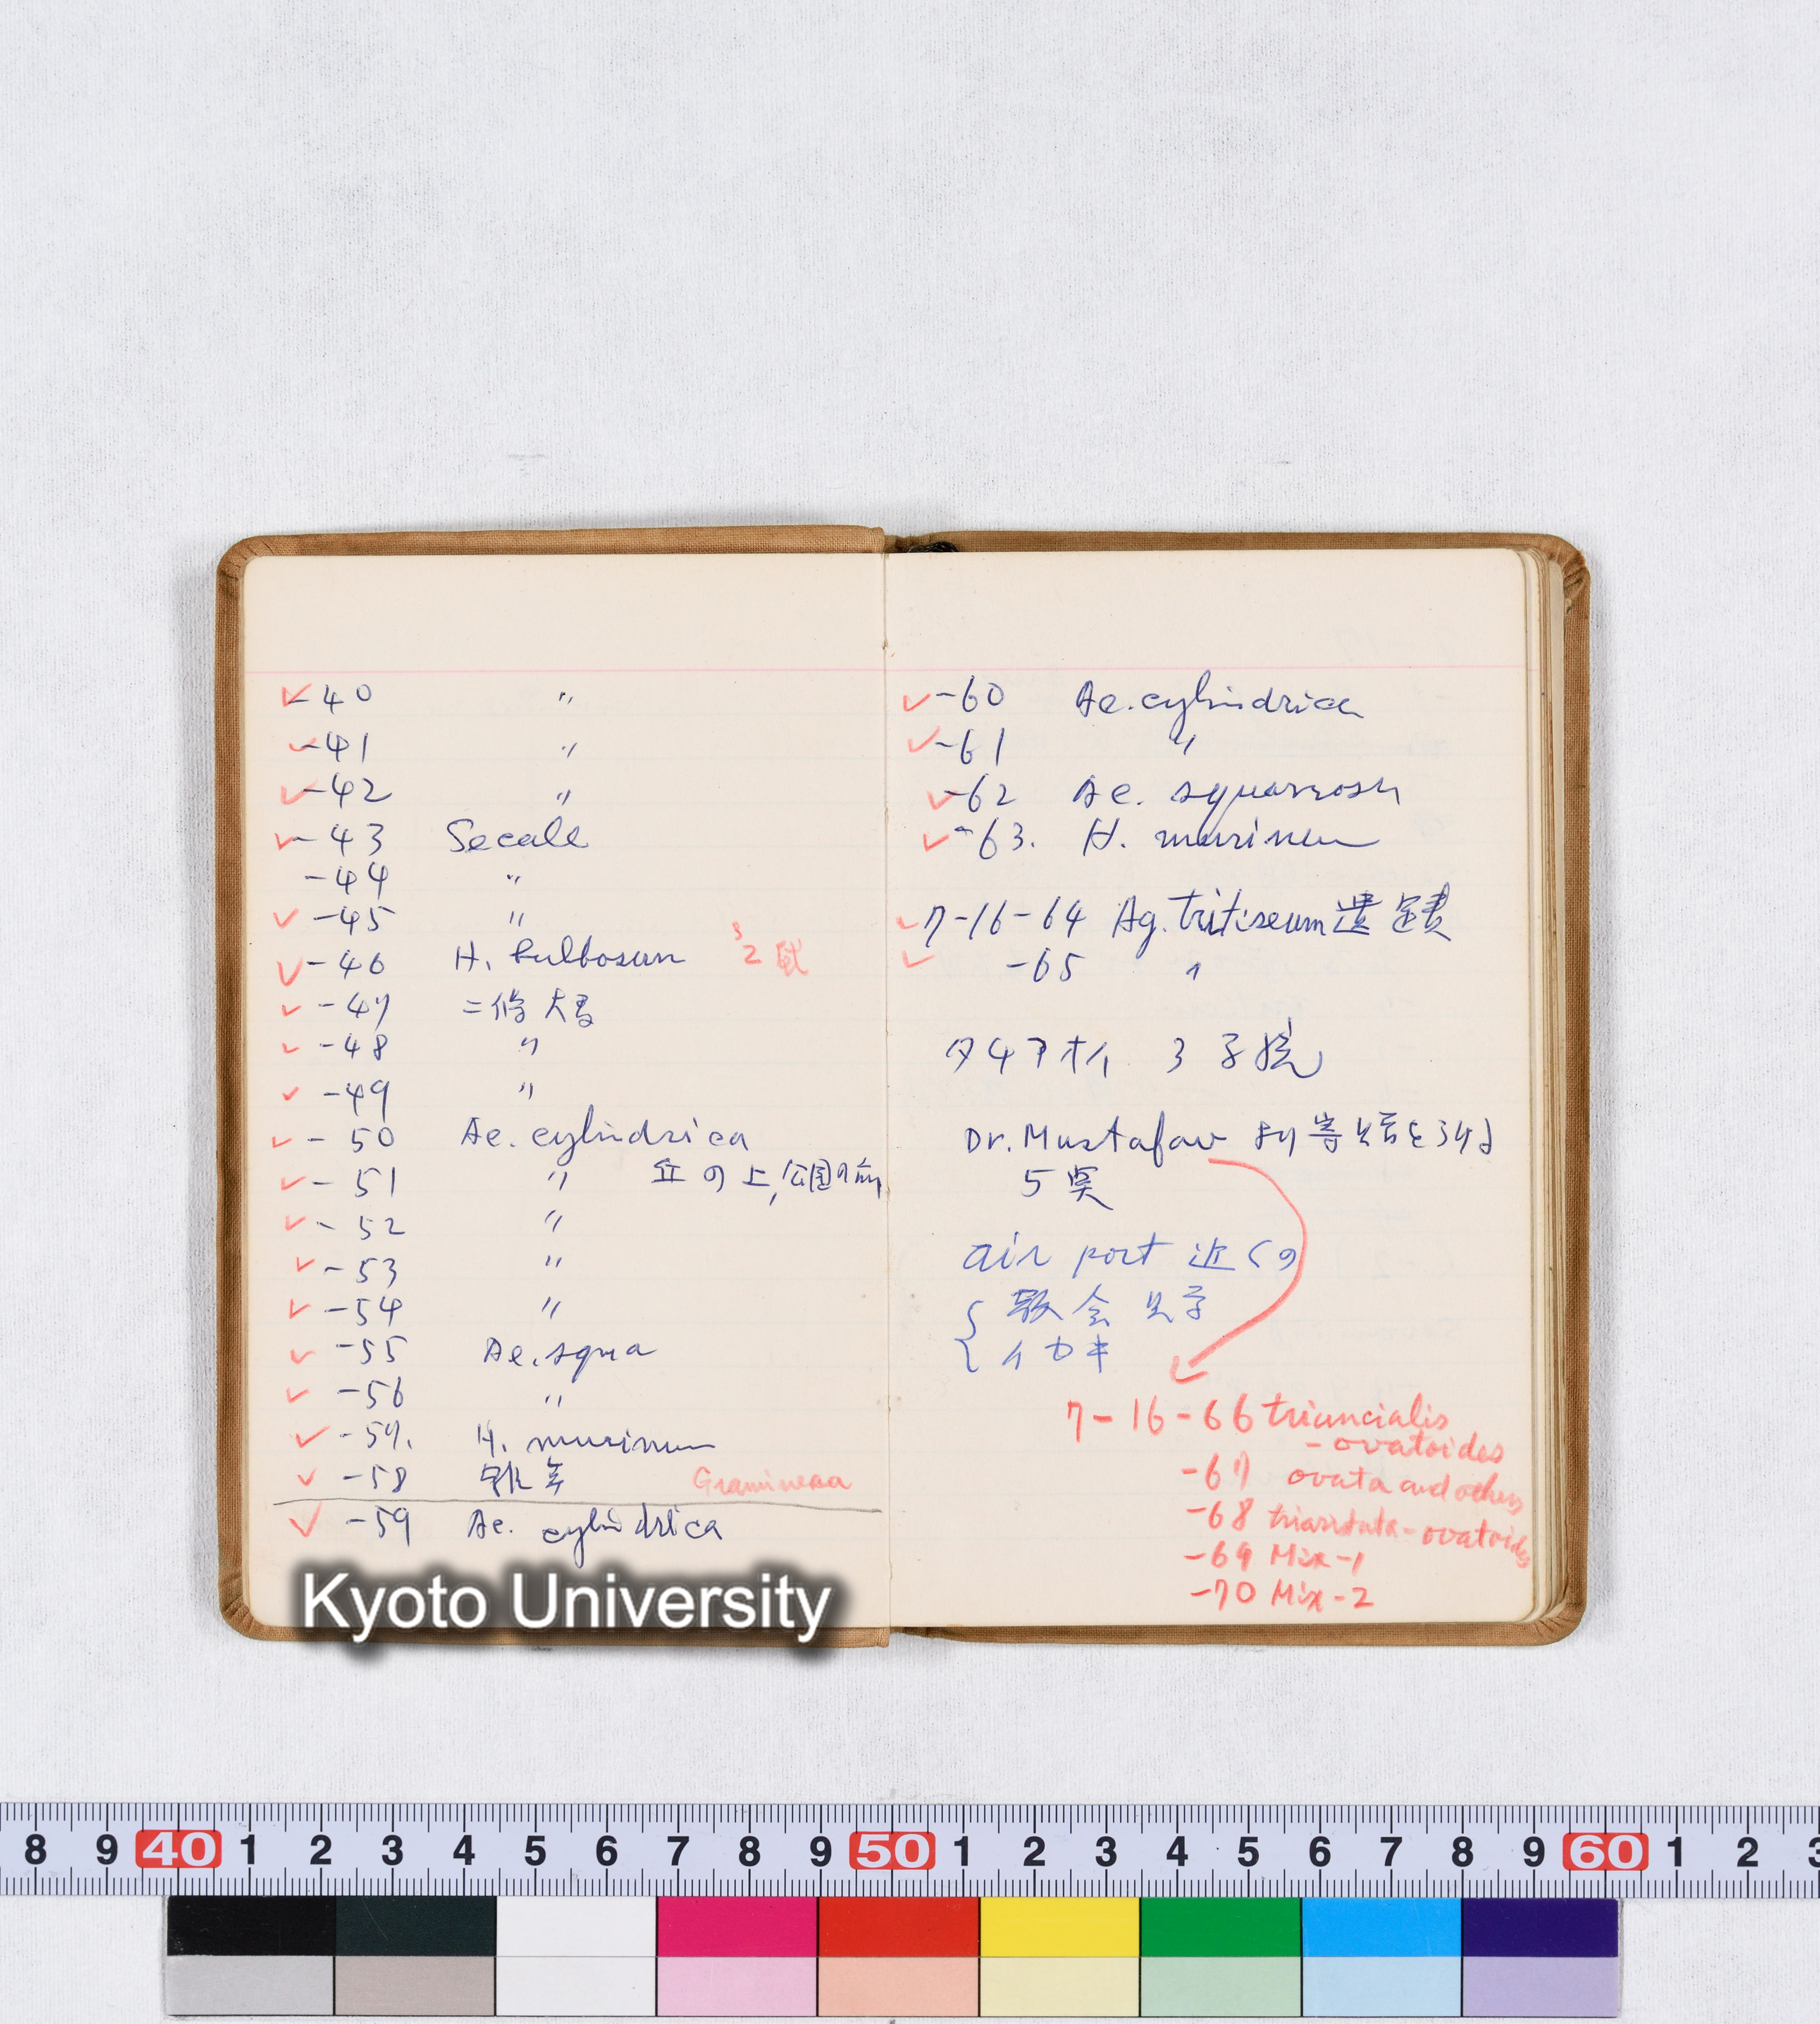 ✓-40 〃
✓-41 〃
✓-42 〃
✓-43 Secale
-44 〃
✓-45 〃
✓-46 H. bulbosum
✓-47 二條大麦
✓-48 〃
✓-49 〃
✓-50 Ae. cylindrica
✓-51 〃 丘の上,公園の前
✓-52 〃
✓-53 〃
✓-54 〃
✓-55 Ae. squa
✓-56 〃
✓-57. H. murinum
✓-58 Gramineaa
✓-59 Ae. cylindrica
✓-60 Ae. cylindrica
✓-61 〃
✓-62 Ae. squarrosa
✓-63. H. murinum
✓7-16-64 Ag. triticeum 遺跡
✓-65 〃
タチアオイ 3 子
Dr. Mustafaw ヨリ寄
5
air port 近くの
教会 見学
7-16-66 triuncialis
-ovatoides
-67 ovata and others
-68 triaristata-ovatoides
-69 Mix-1
-70 Mix-2
Kyoto University
8 9 40 1 2 3 4 5 6 7 8 9 50 1 2 3 4 5 6 7 8 9 60 1 2 3